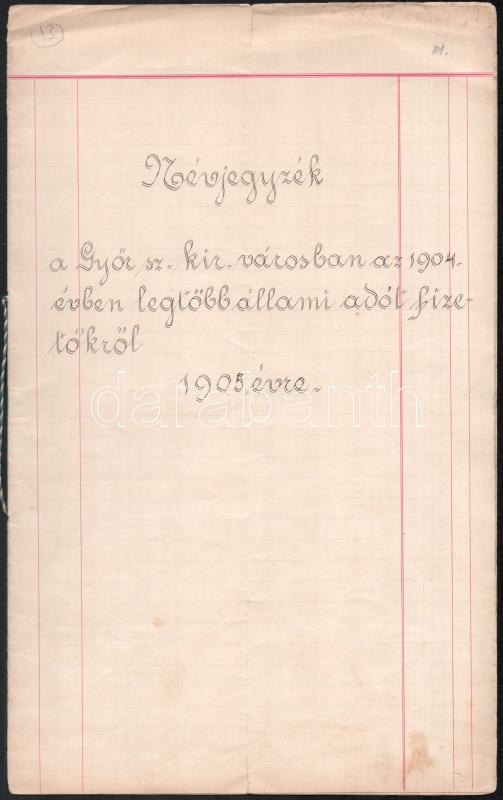 13
81.
Névjegyzék
a Győr sz. kir. városban az 1904.
évben legtöbb állami adót fize-
tőkről
1905. évre.
darabanth